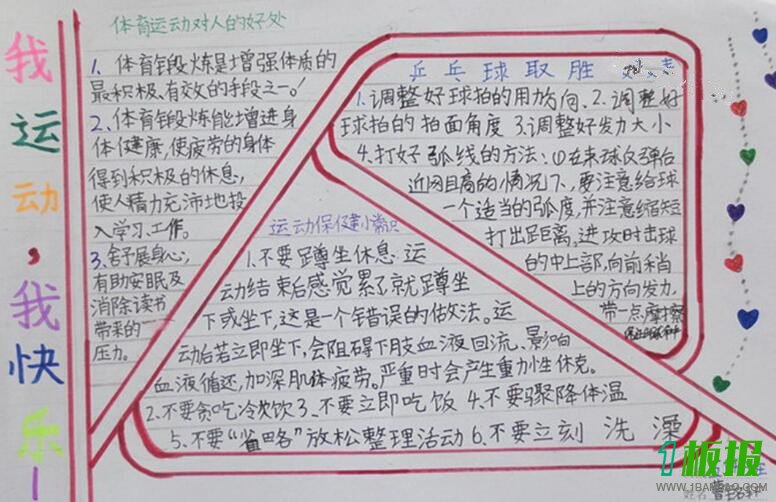 我运动,我快乐!
体育运动对人的好处
1、体育锻炼是增强体质的
最积极、有效的手段之一!
2、体育锻炼能增进身
体健康,使疲劳的身体
得到积极的休息,
使人精力充沛地投
入学习、工作。
3、舒展身心,
有助安眠及
消除读书
带来的
压力。
乒乓球取胜
1、调整好球拍的用力方向、2、调整好
球拍的拍面角度 3、调整好发力大小
4、打好弧线的方法:①在来球仅弹台
近网且高的情况下,要注意给球
一个适当的弧度,并注意缩短
打出距离,进攻时击球
的中上部,向前稍
上的方向发力,
带一点摩擦
运动保健小常识
1、不要蹲坐休息 运
动结束后感觉累了就蹲坐
下或坐下,这是一个错误的做法。运
动后若立即坐下,会阻碍下肢血液回流、影响
血液循还,加深肌体疲劳。严重时会产生重力性休克。
2、不要贪吃冷饮 3、不要立即吃饭 4、不要骤降体温
5、不要“省略”放松整理活动 6、不要立刻 洗澡
1板报
WWW.1BANBAO.COM